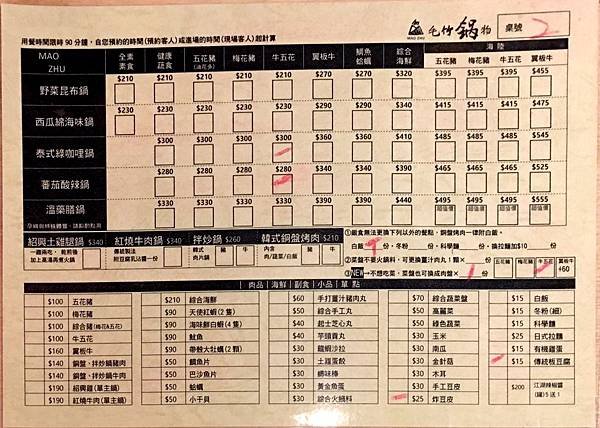 毛竹鍋物 桌號 2
MAO ZHU
用餐時間限時90分鐘，自您預約的時間(預約客人)或進場的時間(現場客人)起計算
海陸
MAO ZHU 全素素食 健康蔬食 五花豬(油花多) 梅花豬 牛五花 翼板牛 鯛魚蛤蠣 綜合海鮮 五花豬 梅花豬 牛五花 翼板牛
野菜昆布鍋 $210 $210 $210 $210 $210 $270 $270 $320 $395 $395 $395 $455
西瓜綿海味鍋 $230 $230 $230 $230 $230 $290 $290 $340 $415 $415 $415 $475
泰式綠咖哩鍋 $300 $300 $300 $300 $360 $360 $410 $485 $485 $485 $545
蕃茄酸辣鍋 $280 $280 $280 $280 $340 $340 $390 $465 $465 $465 $525
溫藥膳鍋 $330 $330 $330 $330 $390 $390 $440 $495 $495 $495 $555
孕婦與特殊體質，請斟酌點用 超值價 超值價 超值價 超值價
紹興土雞腿鍋 $340 紅燒牛肉鍋 $340 拌炒鍋 $260 韓式銅盤烤肉 $210
一鍋兩吃，乾煎後加上高湯再煮火鍋
附豆腐乳沾醬一份
韓式肉片鍋 豬 牛
內含肉/蔬菜/白飯 豬 牛
①飯食無法更換下列以外的餐點，銅盤烤肉一律附白飯。
白飯 1 份，冬粉 份，科學麵 份，換拉麵加$10 份。
②菜盤不要火鍋料，可更換薑汁肉丸1顆×
③NEW→不想吃菜，菜盤也可換成肉盤× 1 份
五花豬 梅花豬 牛五花 翼板牛 +60
| 肉品 | 海鮮 | 副食 | 小品 | 單點
$100 五花豬 $210 綜合海鮮 $60 手打薑汁豬肉丸 $70 綜合蔬菜盤 $15 白飯
$100 梅花豬 $90 天使紅蝦(2隻) $50 綜合手工丸 $50 高麗菜 $15 冬粉(細)
$100 綜合豬(梅花&五花) $90 海味鮮白蝦(4隻) $40 起士芝心丸 $50 綠色蔬菜 $15 科學麵
$100 牛五花 $90 魷魚 $40 芋頭貢丸 $30 玉米 $25 日式拉麵
$160 翼板牛 $90 帶殼大牡蠣(2顆) $40 龍蝦沙拉 $30 南瓜 $15 有機雞蛋
$140 銅盤、拌炒鍋豬肉 $50 鯛魚片 $30 土雞蛋餃 $30 金針菇 $15 傳統板豆腐
$140 銅盤、拌炒鍋牛肉 $50 巴沙魚片 $30 蟳味棒 $30 木耳
$190 紹興雞(單主鍋) $50 蛤蠣 $30 黃金魚蛋 $30 手工豆皮 $200 江湖辣椒醬(罐)5送1
$190 紅燒牛肉(單主鍋) $50 小干貝 $30 綜合火鍋料 $25 炸豆皮